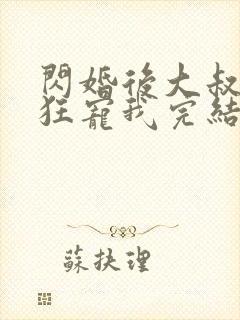 閃婚後大叔
狂寵我完結
蘇扶理